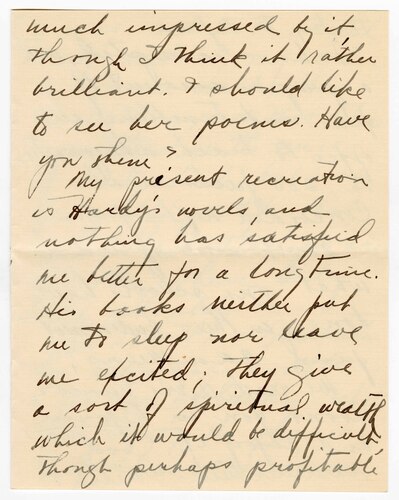 much impressed by it,
though I think it rather
brilliant. I should like
to see her poems. Have
you them?
My present recreation
is Hardy's novels, and
nothing has satisfied
me better for a long time.
His books neither put
me to sleep nor leave
me excited; they give
a sort of spiritual wealth
which it would be difficult,
though perhaps profitable